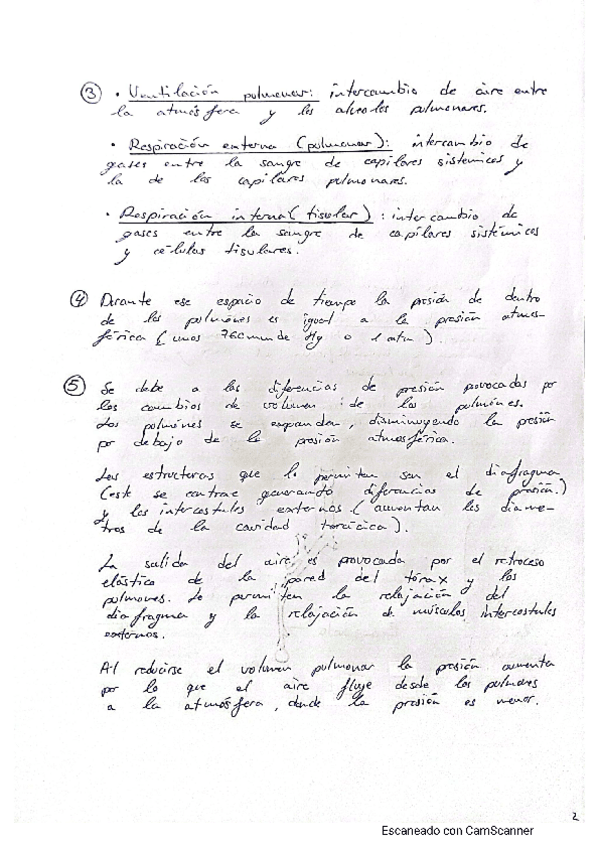 ③ • Ventilación pulmonar: intercambio de aire entre
la atmósfera y los alveolos pulmonares.
• Respiración externa (pulmonar): intercambio de
gases entre la sangre de capilares sistémicos y
la de los capilares pulmonares.
• Respiración interna (tisular): intercambio de
gases entre la sangre de capilares sistémicos
y células tisulares.
④ Durante ese espacio de tiempo la presión de dentro
de los pulmones es igual a la presión atmos-
férica (unos 760 mm de Hg o 1 atm).
⑤ Se debe a las diferencias de presión provocadas por
los cambios de volumen de los pulmones.
Los pulmones se expanden, disminuyendo la presión
por debajo de la presión atmosférica.
Las estructuras que lo permiten son el diafragma
(este se contrae generando diferencias de presión.)
y los intercostales externos (aumentan los diáme-
tros de la cavidad torácica).
La salida del aire es provocada por el retroceso
elástico de la pared del tórax y los
pulmones. Le permiten la relajación del
diafragma y la relajación de músculos intercostales
externos.
Al reducirse el volumen pulmonar la presión aumenta
por lo que el aire fluye desde los pulmones
a la atmósfera, donde la presión es menor.
2
Escaneado con CamScanner